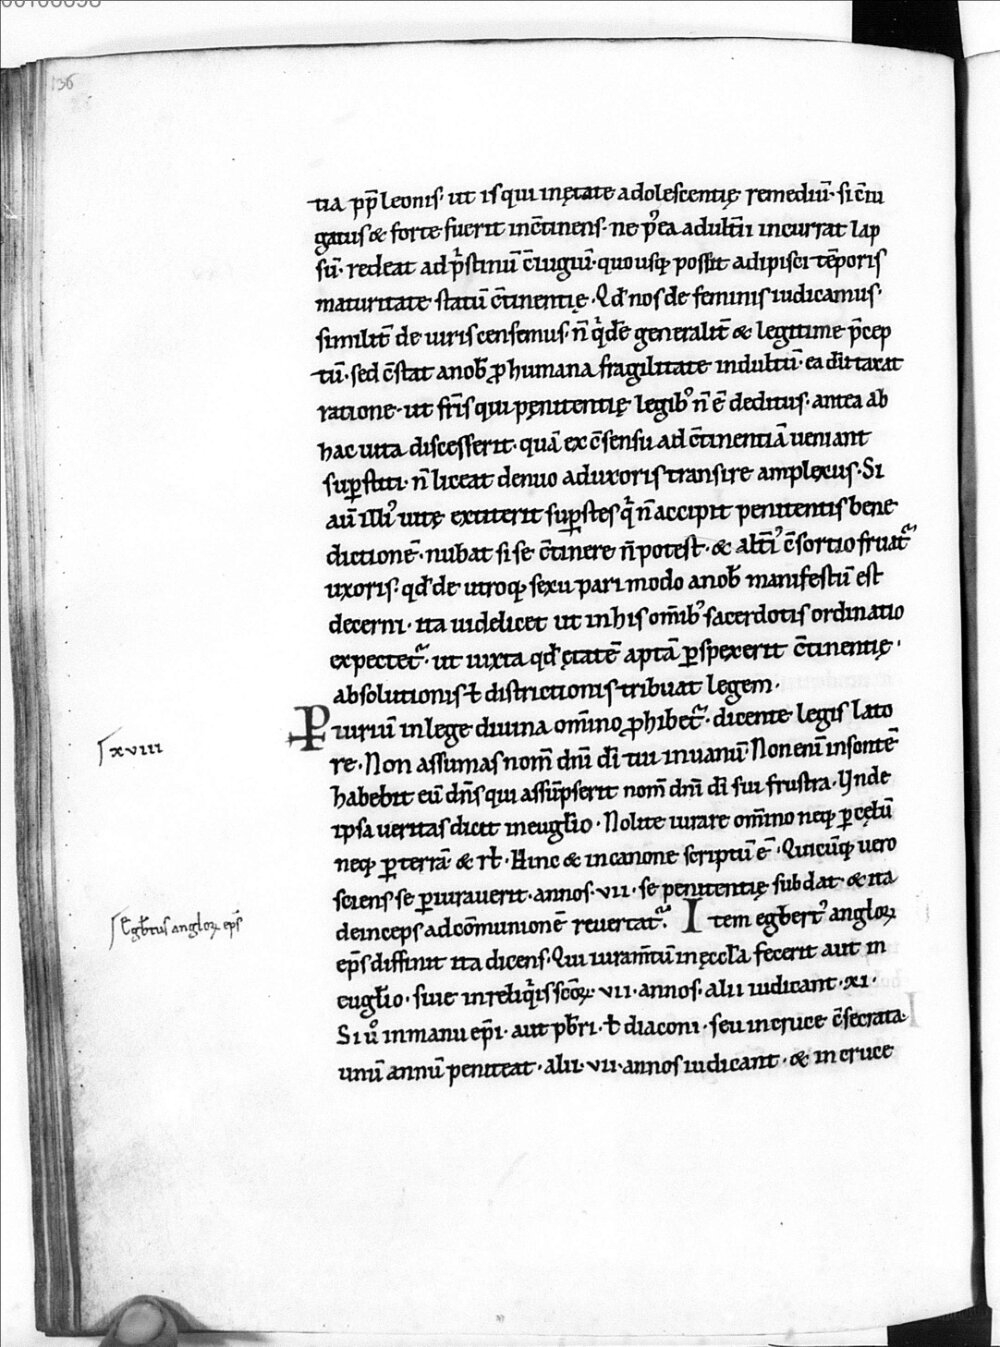 136
tia pp̄ leonis. ut is qui in ętate adolescentię remediū. si c̄iu
gatus & forte fuerit inc̄tinens. ne p᷒ ea adult̄ii incurrat lap
sū. redeat ad p̓stinū c̄iugiū. quousq; possit adipisci tēporis
maturitate statū c̄tinentię. Qd̄ nos de feminis iudicamus.
similit̄ de uiris censemus. n̄ q̓dē generalit̄ & legitime p̄cep
tū. sed c̄stat a nob̄ ꝓ humana fragilitate indultū. ea dūtaxat
ratione. ut fr̄is qui pęnitentię legib᷒ n̄ ē deditus. antea ab
hac uita discesserit. quā ex c̄sensu ad c̄tinentiā ueniant
suꝑstiti. n̄ liceat denuo ad uxoris transire amplexus. Si
aū illi᷒ uitę extiterit suꝑstes q̓ n̄ accipit penitentis bene
dictionē. nubat si se c̄tinere n̄ potest. & alt̄i᷒ c̄sortio fruat᷑
uxoris. qd̄ de utroq; sexu pari modo a nob̄ manifestū est
decerni. ita uidelicet ut in his om̄ib᷒ sacerdotis ordinatio
expectet᷑. ut iuxta qd̄ ętatē aptā ꝑspexerit c̄tinentię.
absolutionis ł districtionis tribuat legem.
ꝑiuriū in lege diuina om̄ino ꝓhibet᷑. dicente legis lato
xviii
re. Non assumas nom̄ dn̄i dī tui in uanū Non enī insontē
habebit eū dn̄s qui assūpserit nom̄ dn̄i dī sui frustra. Unde
ipsa ueritas dicit in eugl̄io. Nolite iurare om̄ino neq; ꝑ cęlū
neq; ꝑ terrā & rł. Hinc & in canone scriptū ē. Quicūq; uero
sciens se ꝑiurauerit. annos. vii. se penitentię subdat & ita
deinceps ad cōmunionē reuertat᷑. Item egbert᷒ angloꝝ
Egb̄tus angloꝝ ep̄s
ep̄s diffinit ita dicens. Qui iuram̄tū in ęccl̄a fecerit aut in
eugl̄io. siue in reliq̓is sc̄oꝝ. vii. annos. alii iudicant. xi.
Si ů in manu ep̄i. aut pb̄ri. ł diaconi. seu in cruce c̄secrata.
unū annū peniteat. alii. vii. annos iudicant. & in cruce